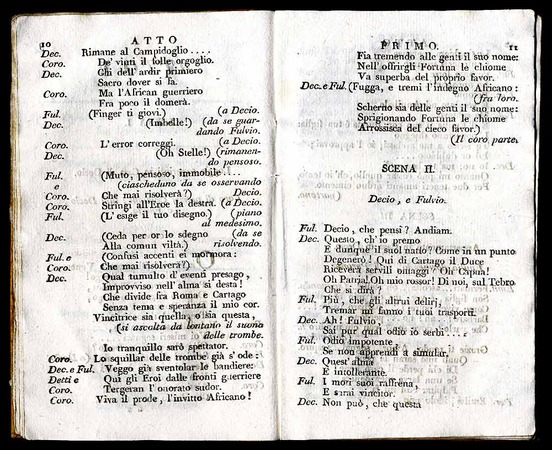 10 ATTO
Dec. Rimane al Campidoglio ....
Coro. De' vinti il folle orgoglio.
Dec. Chi dell'ardir primiero
Sacro dover si fa.
Coro. Ma l'African guerriero
Fra poco il domerà.
Ful. (Finger ti giovi.) (a Decio.
Dec. (Imbelle!) (da se guar-
dando Fulvio.
Coro. L'error correggi. (a Decio.
Dec. (Oh Stelle!) (rimanen-
do pensoso.
Ful. (Muto, pensoso, immobile ....
e (ciascheduno da se osservando
Coro. Che mai risolverà?) Decio.
Coro. Stringi all'Eroe la destra. (a Decio.
Ful. (L'esige il tuo disegno.) (piano
al medesimo.
Dec. (Ceda per or lo sdegno (da se
Alla comun viltà.) risolvendo.
Ful. e (Confusi accenti ei mormora:
Coro. Che mai risolverà?)
Dec. Qual tumulto d'eventi presago,
Improvviso nell'alma si desta!
Che divide fra Roma e Cartago
Senza tema e speranza il mio cor.
Vincitrice sia quella, o sia questa,
(si ascolta da lontano il suono
delle trombe.
Io tranquillo sarò spettator.
Coro. Lo squillar delle trombe già s'ode:
Dec. e Ful. Veggo già sventolar le bandiere:
Detti e Qui gli Eroi dalle fronti guerriere
Coro. Tergeran l'onorato sudor.
Coro. Viva il prode, l'invitto Africano!
PRIMO. 11
Fia tremendo alle genti il suo nome:
Nell'offrirgli Fortuna le chiome
Va superba del proprio favor.
Dec. e Ful. (Fugga, e tremi l'indegno Africano:
(fra loro.
Scherno sia delle genti il suo nome:
Sprigionando Fortuna le chiome
Arrossisca del cieco favor.)
(Il coro parte.
SCENA II.
Decio, e Fulvio.
Ful. Decio, che pensi? Andiam.
Dec. Questo, ch'io premo
E dunque il suol natìo? Come in un punto
Degenerò! Qui di Cartago il Duce
Riceverà servili omaggi? Oh Capua!
Oh Patria! Oh mio rossor! Di noi, sul Tebro
Che si dirà?
Ful. Più, che gli altrui deliri,
Tremar mi fanno i tuoi trasporti.
Dec. Ah! Fulvio,
Sai pur qual odio io serbo ...
Ful. Odio impotente
Se non apprendi a simular.
Dec. Quest'alma
E intollerante.
Ful. I moti suoi raffrena,
E sarai vincitor.
Dec. Non può, che questa